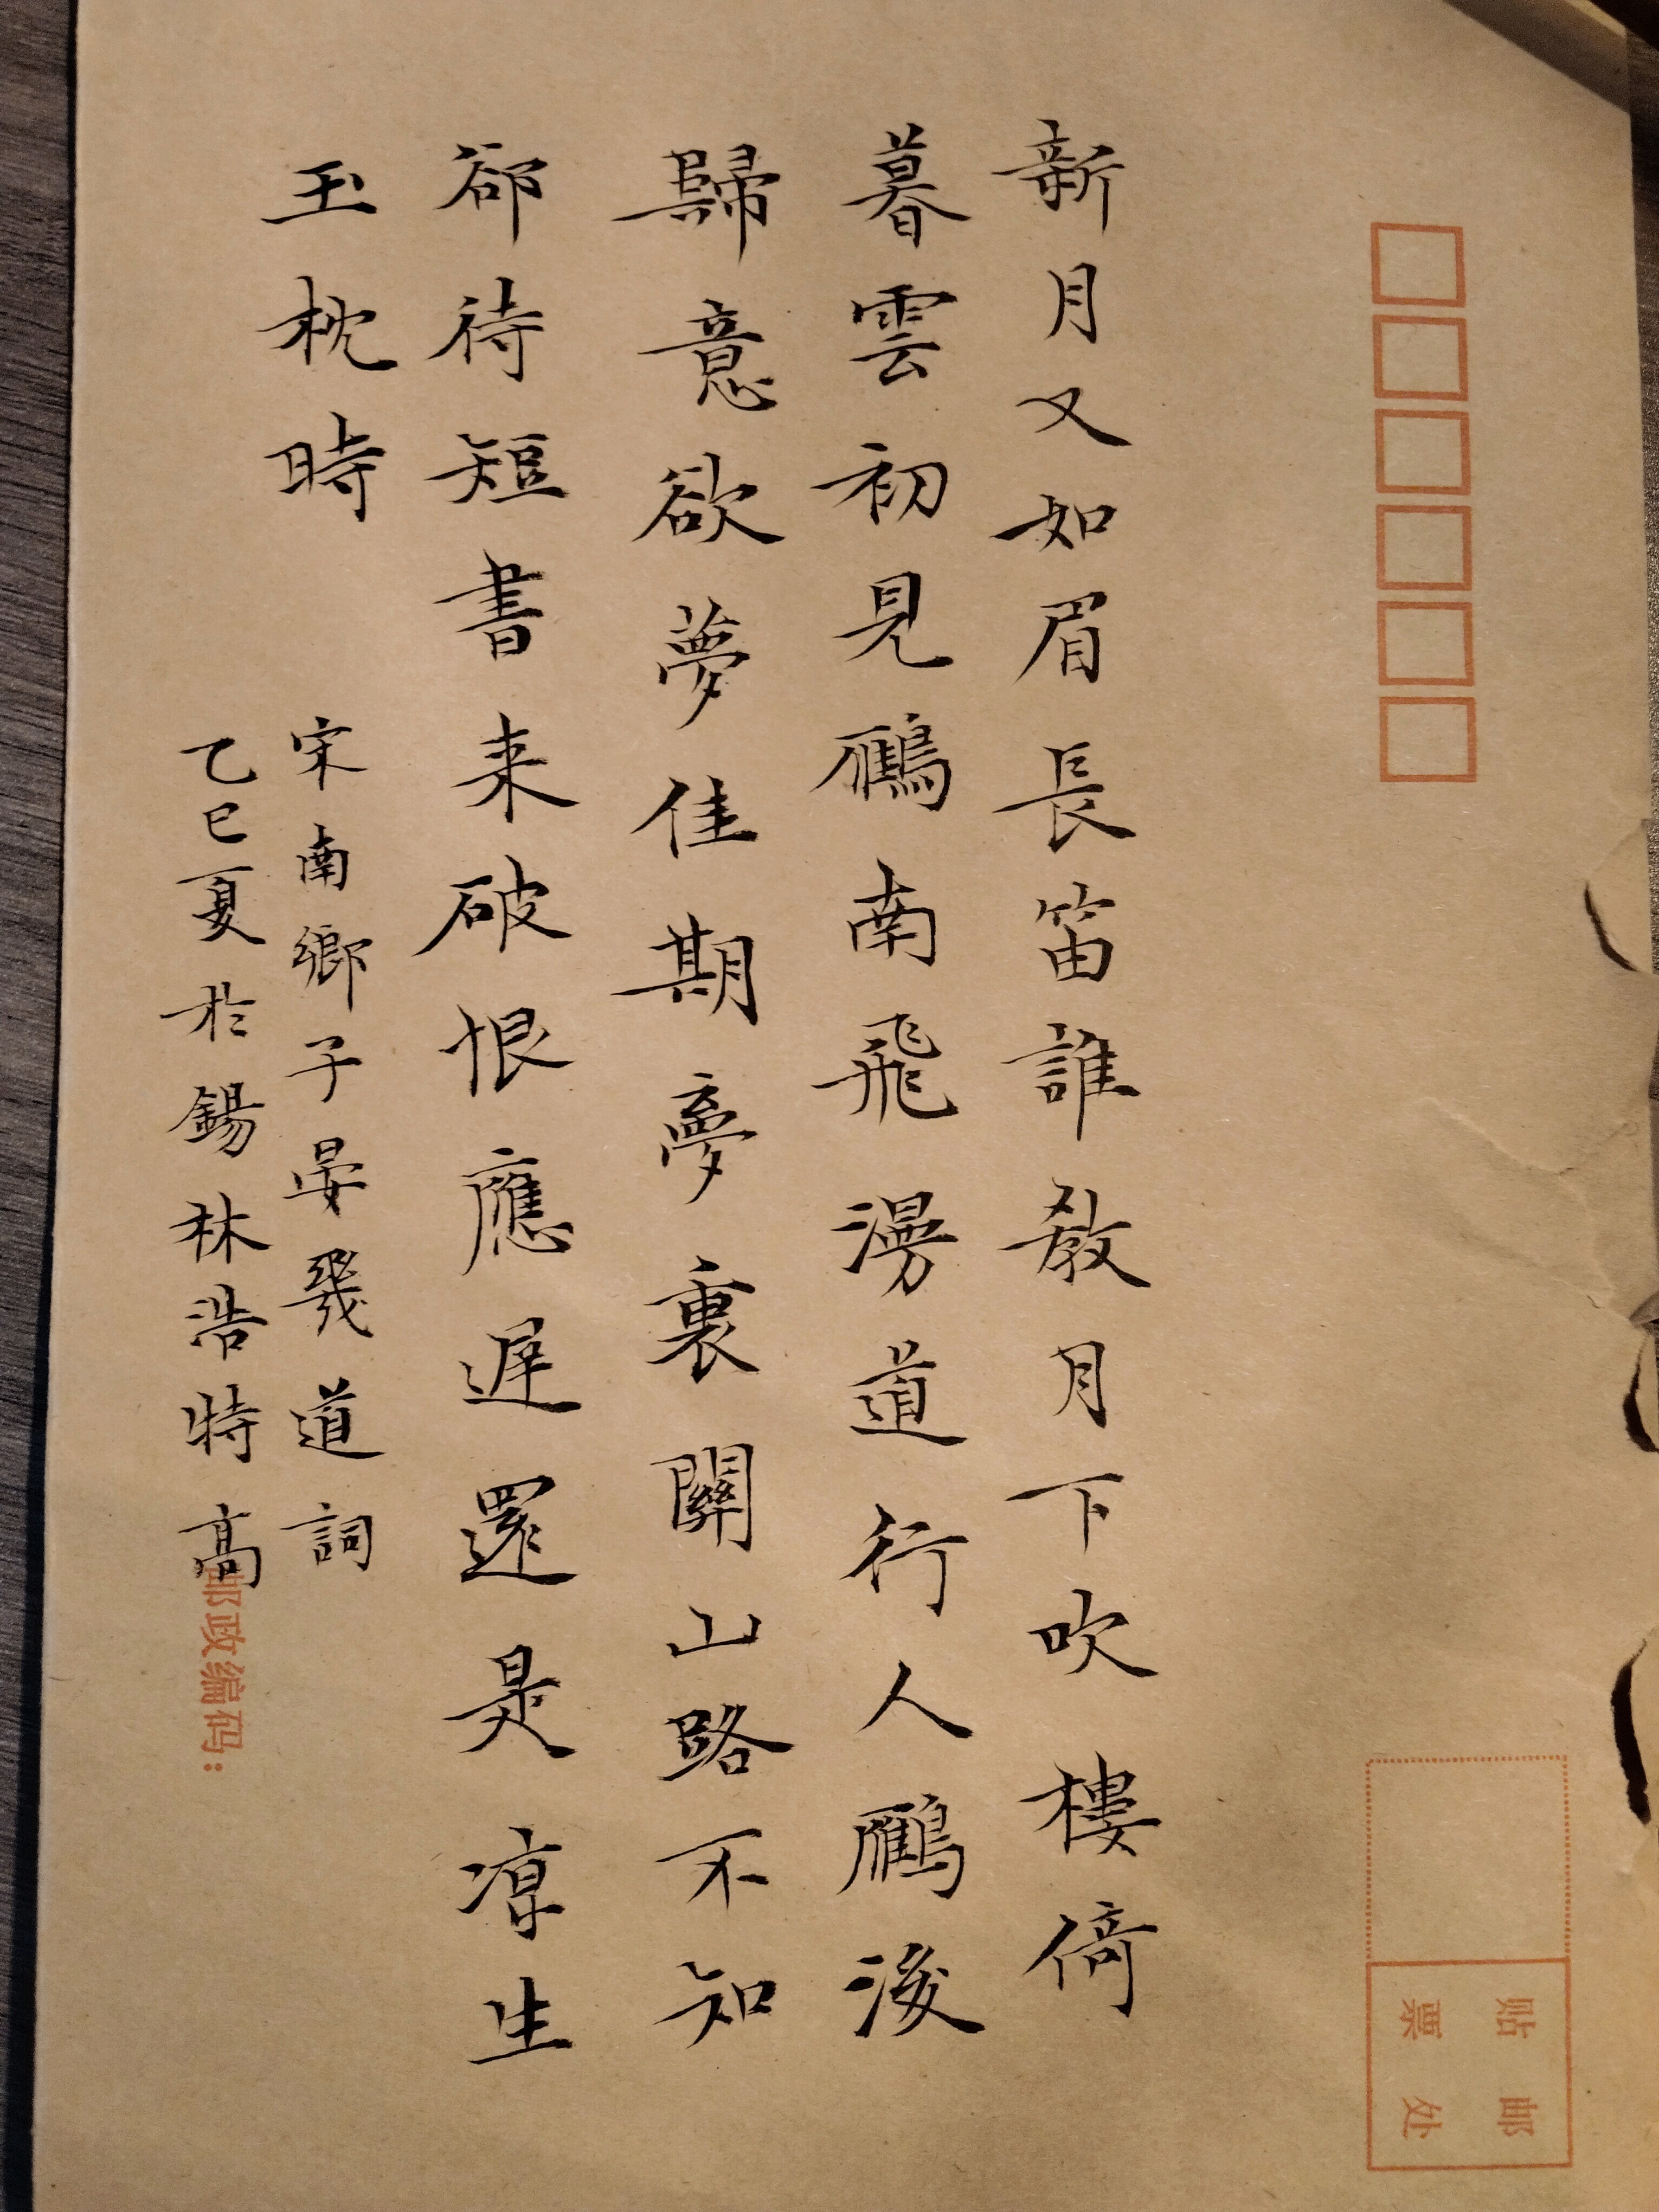 新月又如眉長笛誰教月下吹樓倚
暮雲初見鴈南飛漫道行人鴈後
歸意欲夢佳期夢裏關山路不知
郤待短書来破恨應遅還是涼生
玉枕時
宋南鄉子晏幾道詞
乙巳夏於錫林浩特高
邮政编码:
贴邮
票处